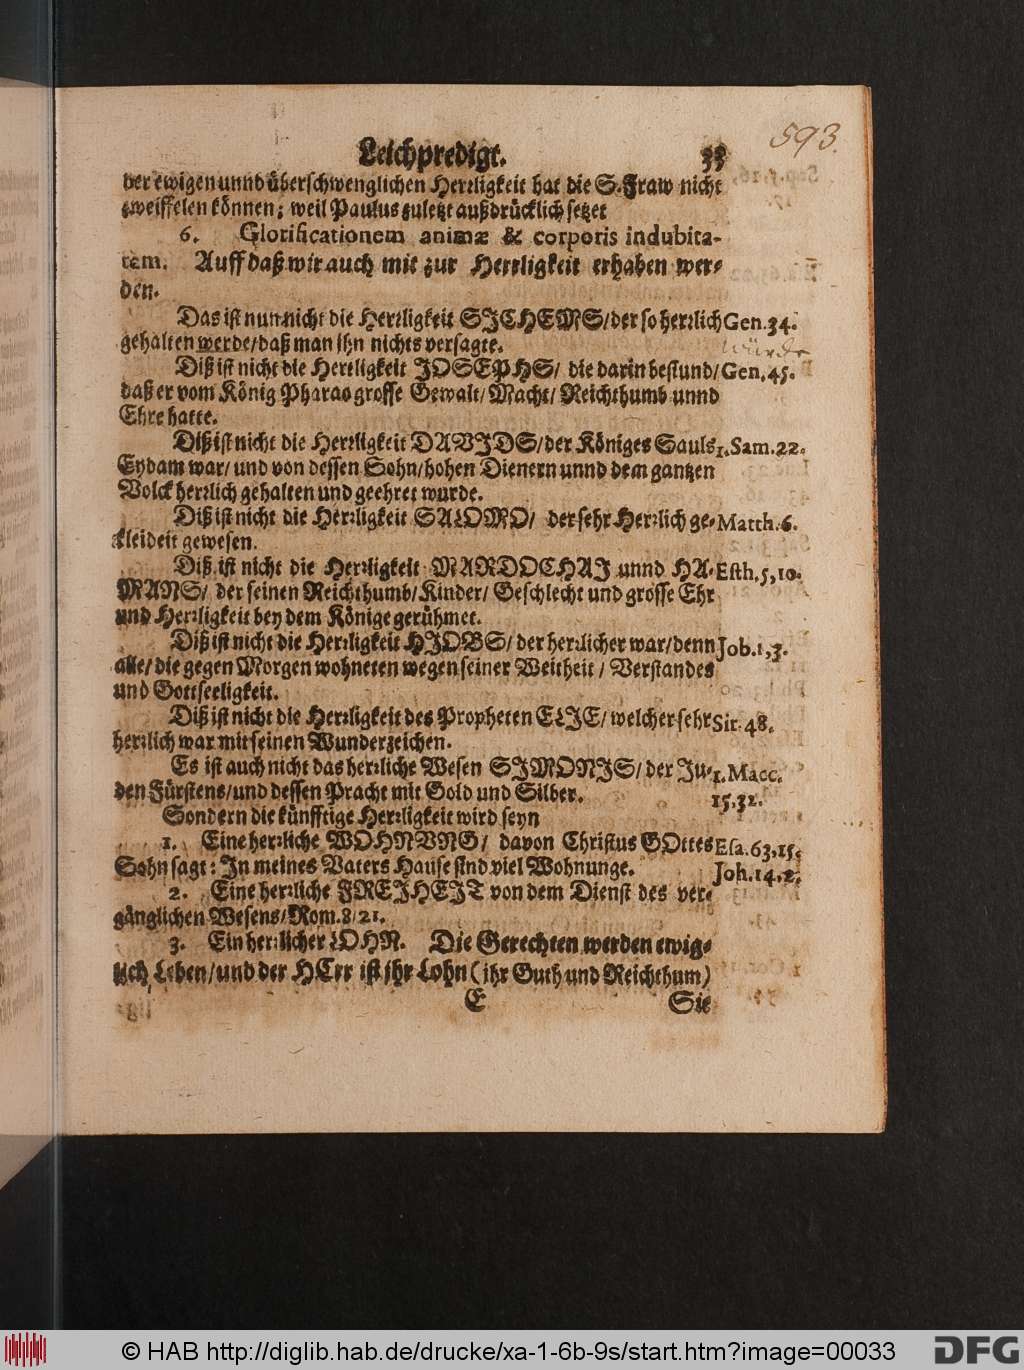 593.
Leichpredigt. 33
der ewigen unnd überschwenglichen Herrligkeit hat die S. Fraw nicht
zweiffelen können; weil Paulus zuletzt außdrücklich setzet
6. Glorificationem animæ & corporis indubita-
tam. Auff daß wir auch mit zur Herrligkeit erhaben wer-
den.
Das ist nun nicht die Herrligkeit SICHEMS/ der so herrlich Gen. 34.
gehalten werde/ daß man ihn nichts versagte. würde
Diß ist nicht die Herrligkeit JOSEPHS/ die darin bestund/ Gen. 45.
daß er vom König Pharao grosse Gewalt/ Macht/ Reichthumb unnd
Ehre hatte.
Diß ist nicht die Herrligkeit DAVIDS/ der Königes Sauls 1. Sam. 22.
Eydam war/ und von dessen Sohn/ hohen Dienern unnd dem gantzen
Volck herrlich gehalten und geehret wurde.
Diß ist nicht die Herrligkeit SALOMO/ der sehr Herrlich ge- Matth. 6.
kleideit gewesen.
Diß ist nicht die Herrligkeit MARDOCHAI unnd HA- Esth. 5, 10.
MANS/ der seinen Reichthumb/ Kinder/ Geschlecht und grosse Ehr
und Herrligkeit bey dem Könige gerühmet.
Diß ist nicht die Herrligkeit HIOBS/ der herrlicher war/ denn Job. 1, 3.
alle/ die gegen Morgen wohneten wegen seiner Weitheit / Verstandes
und Gottseeligkeit.
Diß ist nicht die Herrligkeit des Propheten ELIE/ welcher sehr Sir. 48.
herrlich war mit seinen Wunderzeichen.
Es ist auch nicht das herrliche Wesen SIMONIS/ der Jü- 1. Macc.
den Fürstens/ und dessen Pracht mit Gold und Silber. 15. 32.
Sondern die künfftige Herrligkeit wird seyn
1. Eine herrliche WOHNUNG/ davon Christus GOttes Esa. 63, 15.
Sohn sagt: In meines Vaters Hause sind viel Wohnunge. Joh. 14. 2.
2. Eine herrliche FREIHEIT von dem Dienst des ver-
gänglichen Wesens/ Rom. 8/ 21.
3. Ein herrlicher LOHN. Die Gerechten werden ewig-
lich Leben/ und der HErr ist ihr Lohn (ihr Guth und Reichthum)
E Sie
© HAB http://diglib.hab.de/drucke/xa-1-6b-9s/start.htm?image=00033 DFG